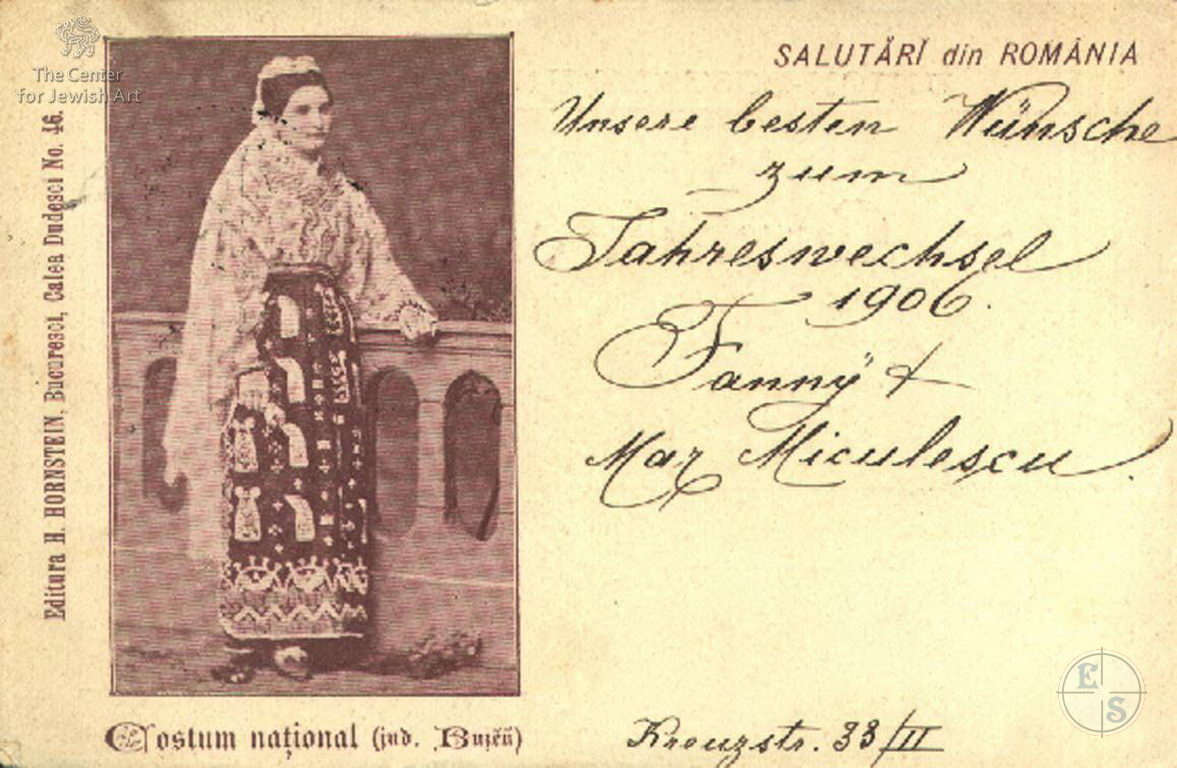 The Center
for Jewish Art
SALUTĂRĬ din ROMÂNIA
Editura H. HORNSTEIN, Bucuresci, Calea Dudesci No. 46.
Unsere besten Wünsche
zum
Jahreswechsel
1906.
Fannÿ &
Max Miculescu.
Costum național (jud. Buzĕŭ)
Kreuzstr. 33/II
E
S